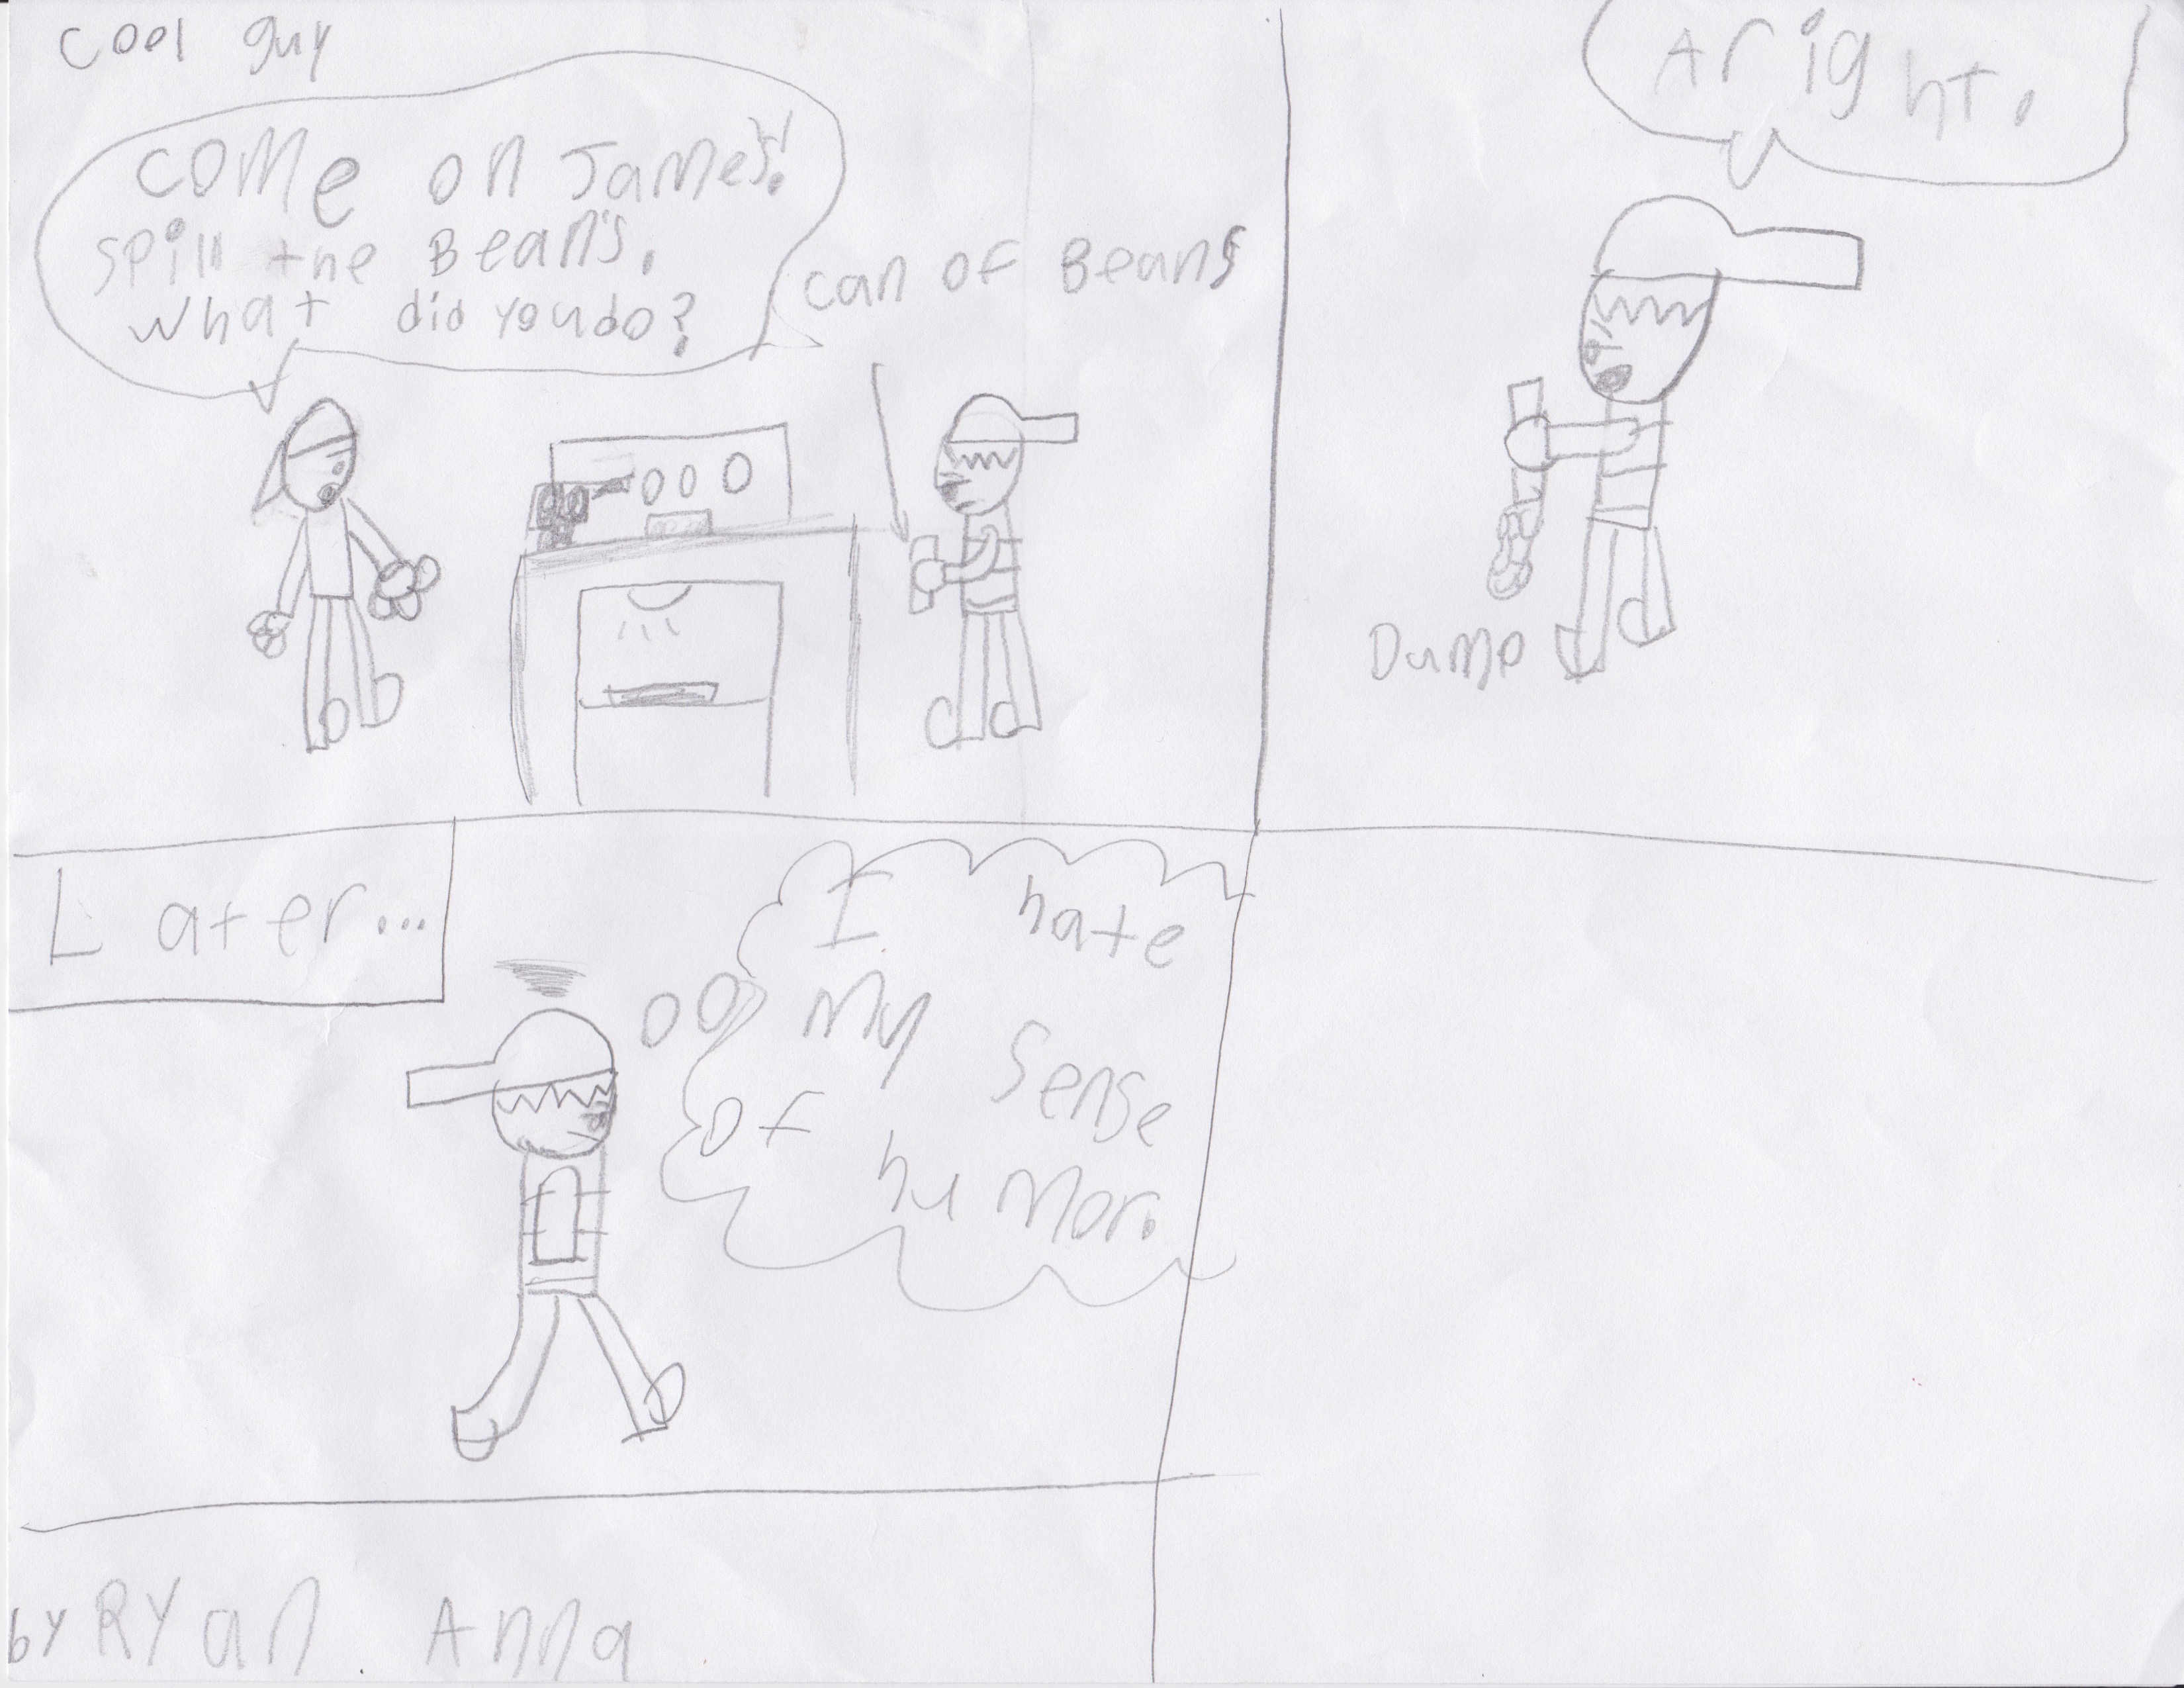 cool guy
come on James!
spill the Beans.
what did you do?
can of Beans
Aright.
Dump
Later...
I hate
my sense
of humor.
by RYan Anna